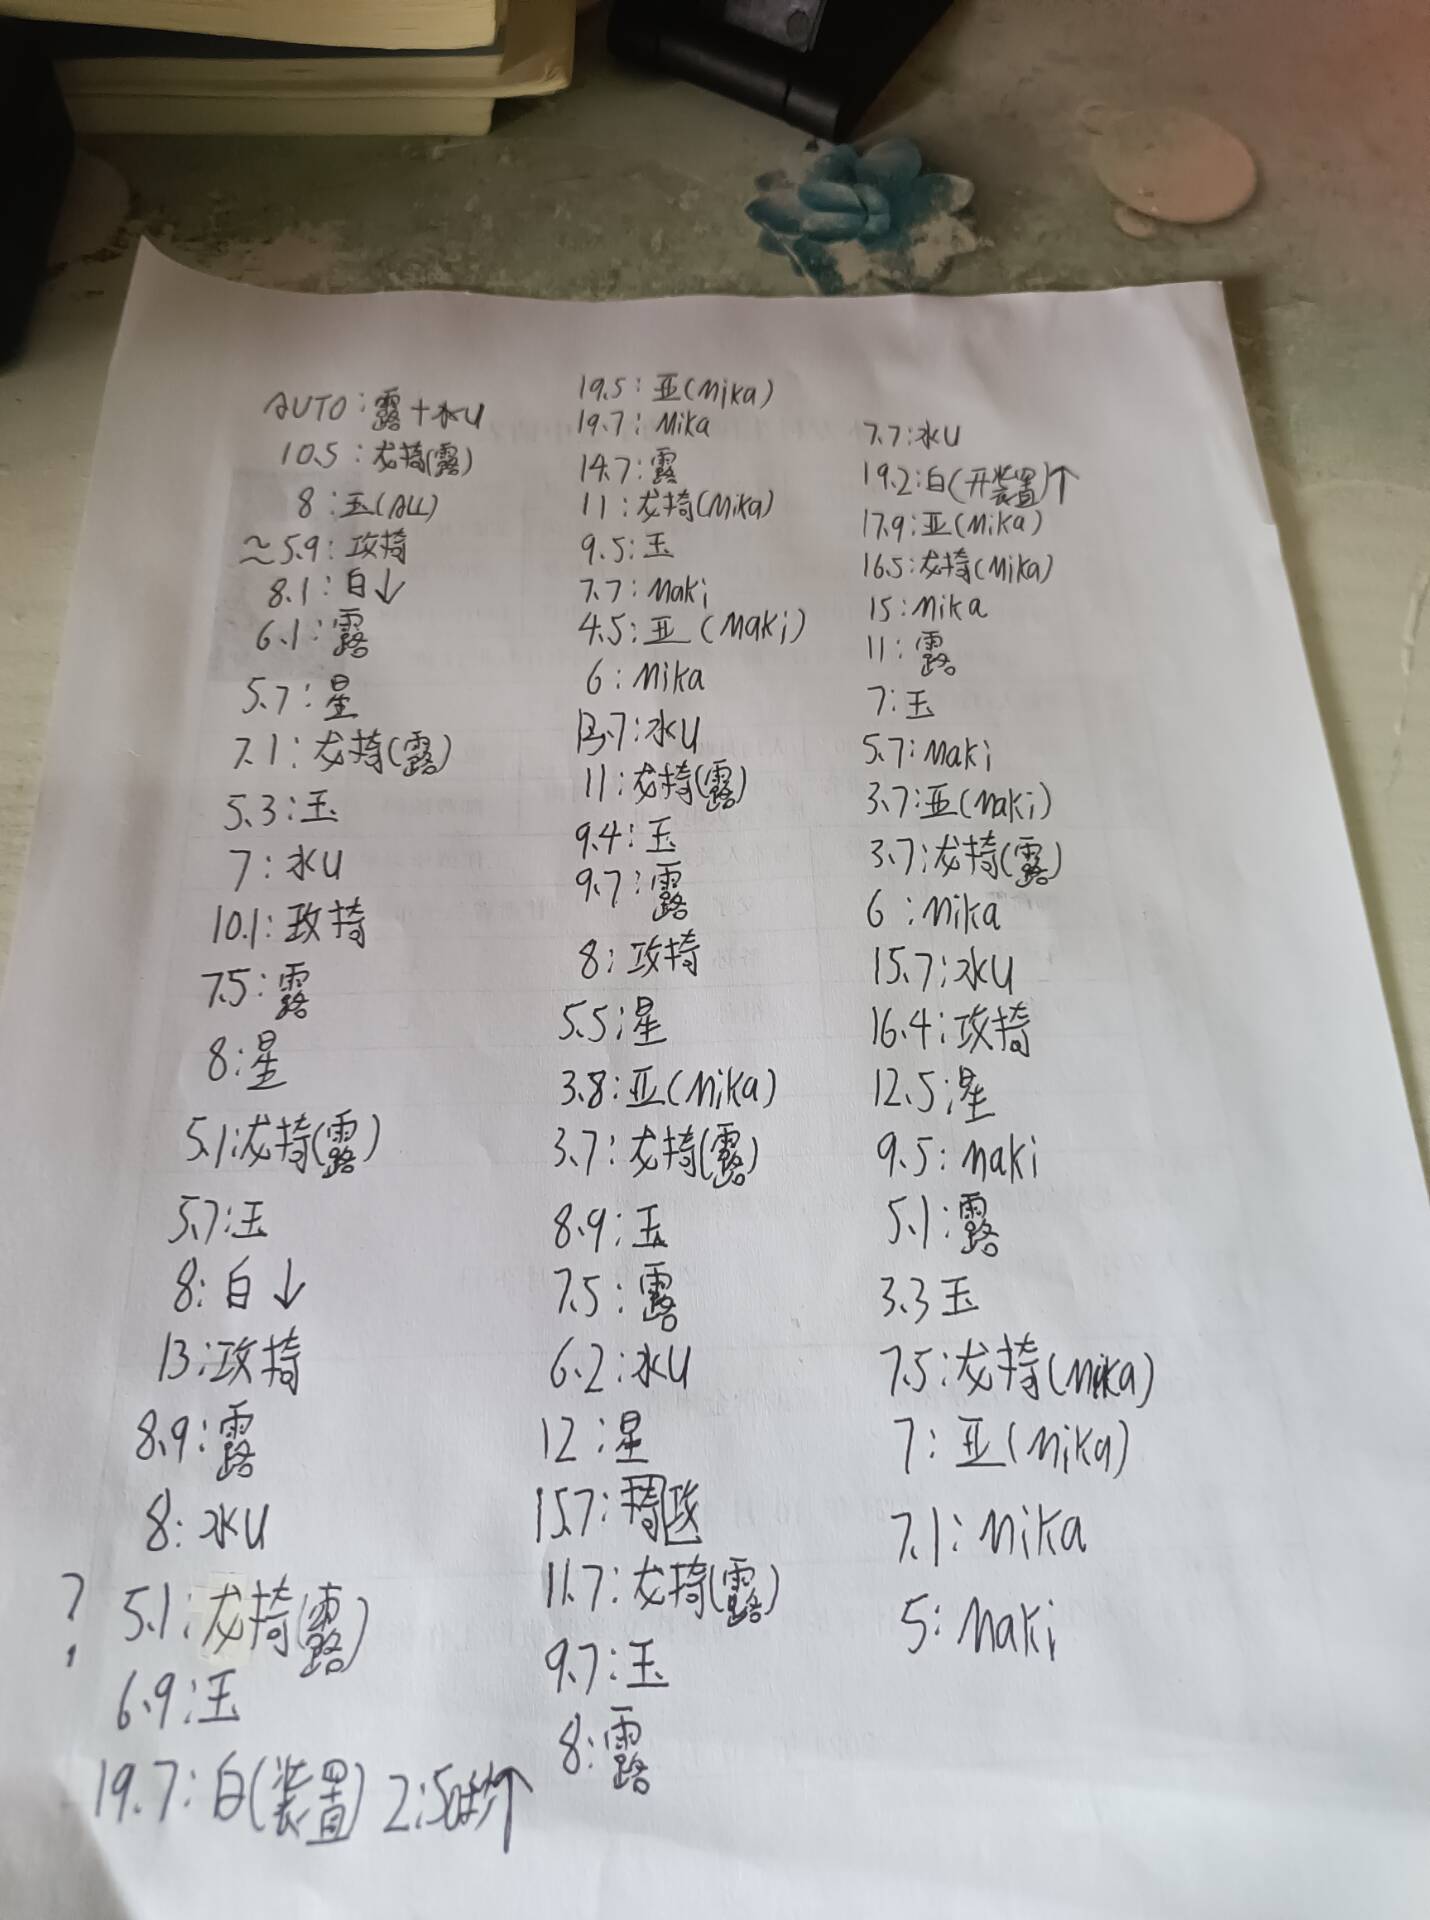 AUTO:露+水U
10.5:龙掎(露)
8:玉(ALL)
~5.9:攻掎
8.1:白↓
6.1:露
5.7:星
7.1:龙掎(露)
5.3:玉
7:水U
10.1:攻掎
7.5:露
8:星
5.1:龙掎(露)
5.7:玉
8:白↓
13:攻掎
8.9:露
8:水U
? 5.1:龙掎(露)
6.9:玉
19.7:白(装置) 2:50秒↑
19.5:亚(Mika)
19.7:Mika
14.7:露
11:龙掎(Mika)
9.5:玉
7.7:Maki
4.5:亚(Maki)
6:Mika
13.7:水U
11:龙掎(露)
9.4:玉
9.7:露
8:攻掎
5.5:星
3.8:亚(Mika)
3.7:龙掎(露)
8.9:玉
7.5:露
6.2:水U
12:星
15.7:掎攻
11.7:龙掎(露)
9.7:玉
8:露
7.7:水U
19.2:白(开装置)↑
17.9:亚(Mika)
16.5:龙掎(Mika)
15:Mika
11:露
7:玉
5.7:Maki
3.7:亚(Maki)
3.7:龙掎(露)
6:Mika
15.7:水U
16.4:攻掎
12.5:星
9.5:Maki
5.1:露
3.3玉
7.5:龙掎(Mika)
7:亚(Mika)
7.1:Mika
5:Maki